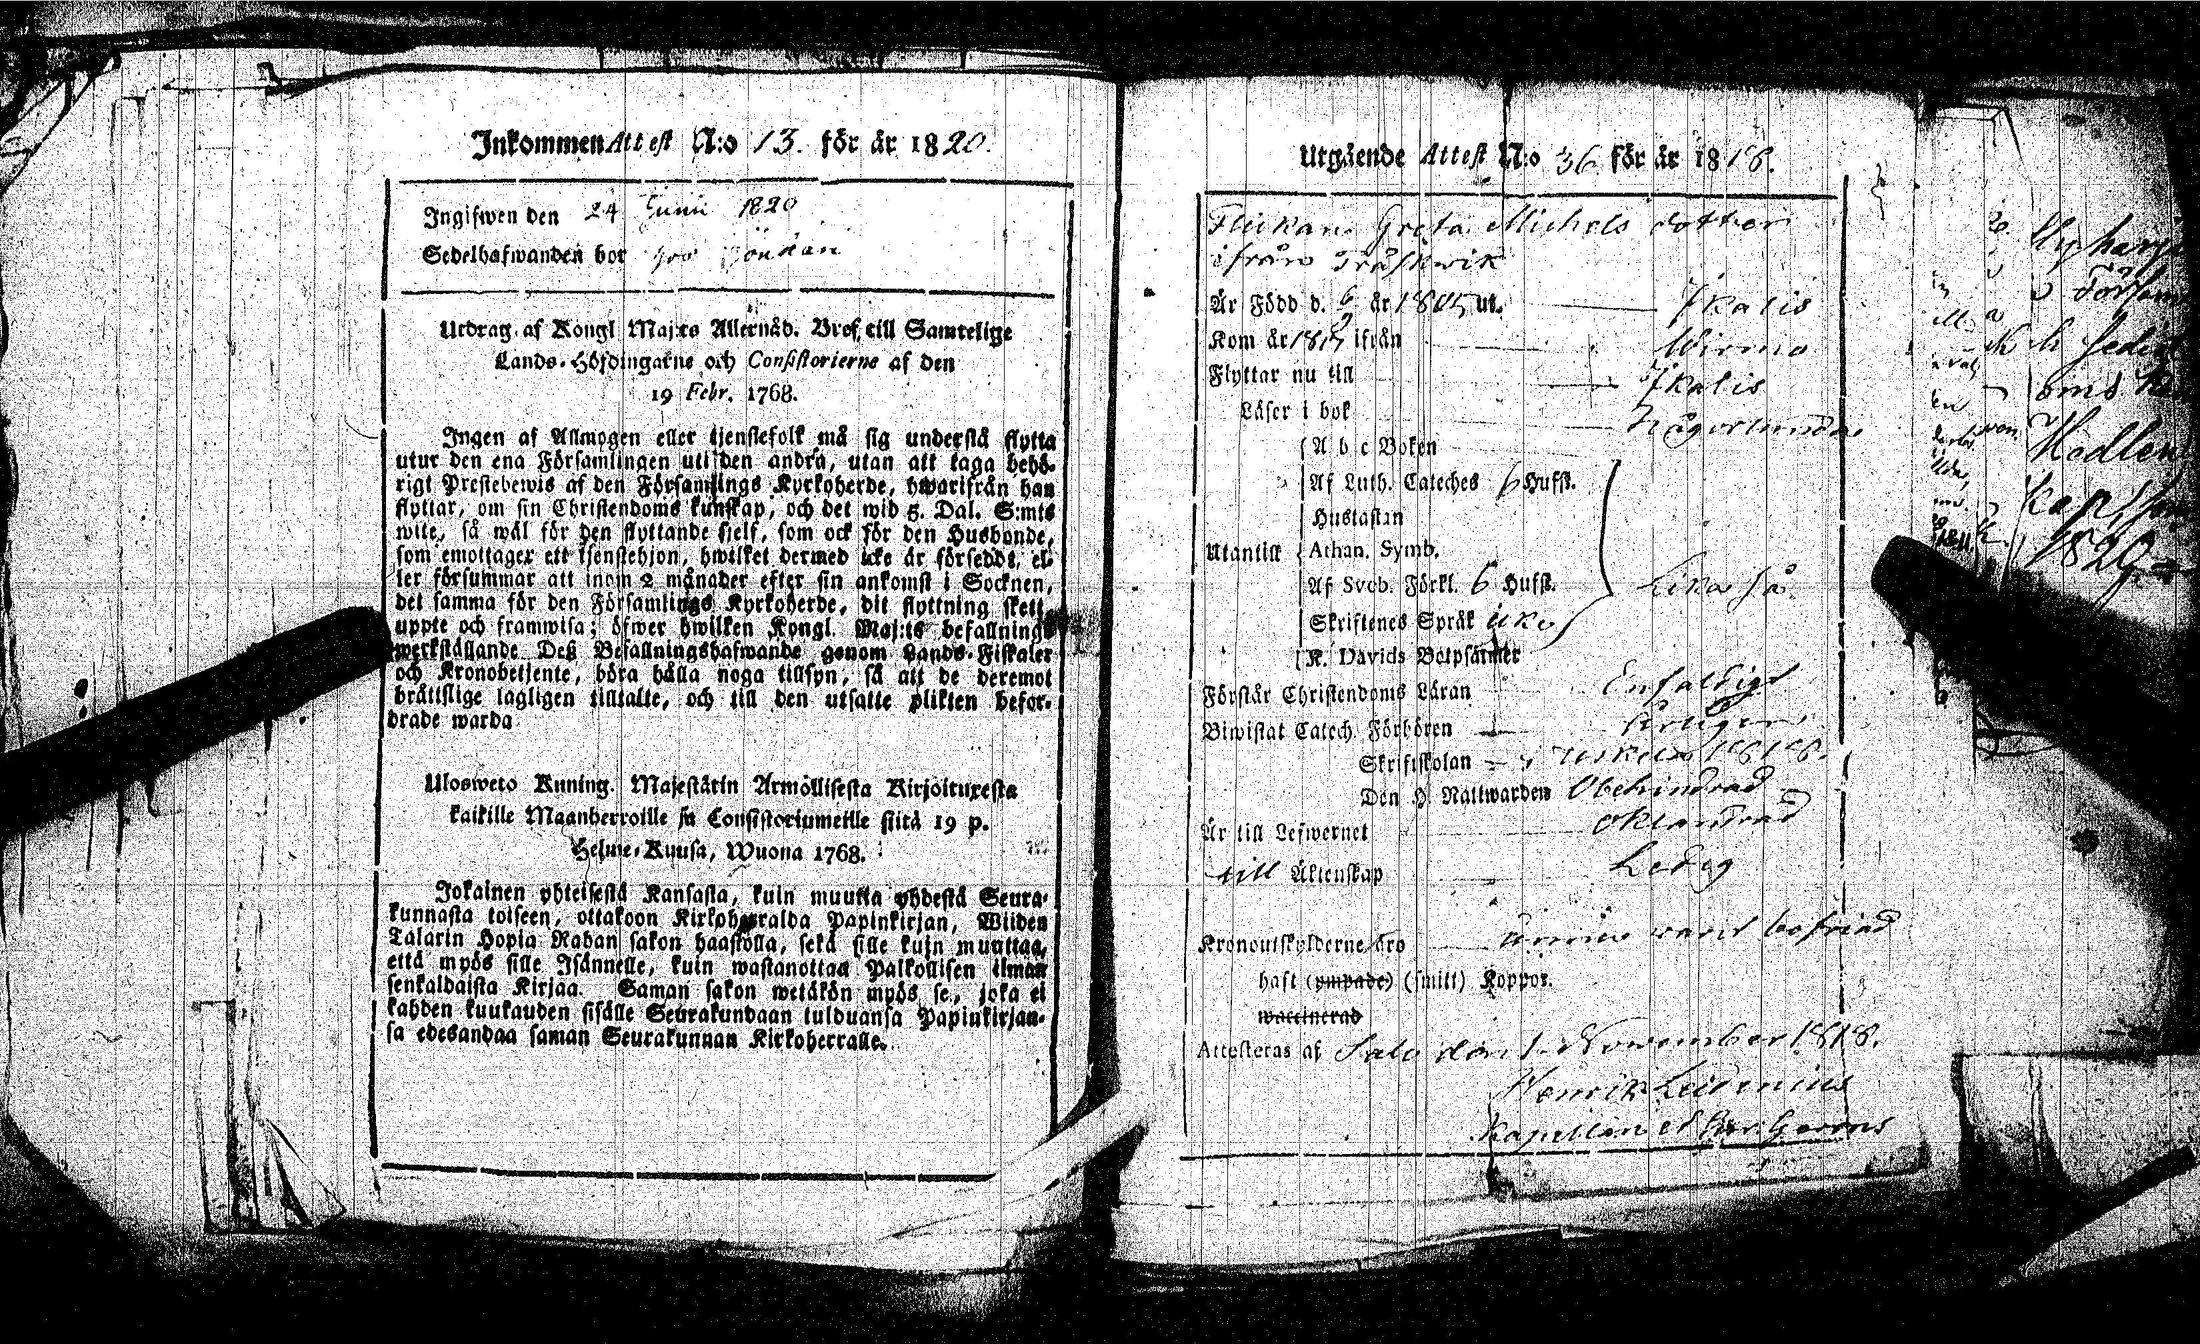 Inkommen Attest N:o 13. för år 1820.
Ingifwen den 24 Junii 1820
Sedelhafwanden bor hos
Utdrag af Kongl Maj:ts Allernåd. Bref till Samtelige
Lands-Höfdingarne och Consistorierne af den
19 Febr. 1768.
Ingen af Allmogen eller tjenstefolk må sig understå flytta
utur den ena Församlingen uti den andra, utan att taga behö-
rigt Prestebewis af den Församlings Kyrkoherde, hwarifrån han
flyttar, om sin Christendoms kunskap, och det wid 5. Dal. S:mts
wite, så wäl för den flyttande sjelf, som ock för den Husbonde,
som emottager ett tjenstehjon, hwilket dermed icke är försedt, el-
ler försummar att inom 2 månader efter sin ankomst i Socknen,
det samma för den Församlings Kyrkoherde, dit flyttning skett,
uppte och framwisa; öfwer hwilken Kongl. Maj:ts befallnings
werkställande Deß Befallningshafwande genom Lands-Fiskaler
och Kronobetjente, böra hålla noga tillsyn, så att de deremot
bråttslige lagligen tilltalte, och till den utsatte plikten befor-
drade warda
Ulosweto Kuning. Majestätin Armollisesta Kirjoituxesta
kaikille Maanherroille ja Consistoriumeille siitä 19 p.
Helme-Kuusa, Wuona 1768.
Jokainen yhteisestä Kansasta, kuin muutta yhdestä Seura-
kunnasta toiseen, ottakoon Kirkoherralda Papinkirjan, Wiiden
Talarin Hopia Rahan sakon haastolla, sekä sille kuin muuttaa,
että myös sille Isännelle, kuin wastanottaa Palkollisen ilman
senkaldaista Kirjaa. Saman sakon wetäkön myös se, joka ei
kahden kuukauden sisälle Seurakundaan tulduansa Papinkirjan-
sa edesandaa saman Seurakunnan Kirkoherralle.
Utgående Attest N:o 36 för år 1818.
Flickan Greta Michels dotter
ifrån Träskwik
Är Född d. 6/9 år 1805 uti Ikalis
Kom år ifrån Wirmo
Flyttar nu till Ikalis
Läser i bok Någorlunda
A b c Boken
Af Luth. Cateches 6 Hufst.
Hustaflan
Utantill Athan. Symb.
Af Sveb. Förkl. 6 Hufst. Lika så
Skriftenes Språk icke
K. Davids Botpsalmer
Förstår Christendoms Läran Enfaldigt
Biwistat Catech. Förhören
Skriftskolan 1818.
Den H. Nattwarden Obehindrad
Är till Lefwernet Oklandrad
till Äktenskap Ledig
Kronoutskylderne äro ännu befriad
haft (ympade) (smitt) Koppor.
waccinerad
Attesteras af Salo den 1. November 1818.
Henrik
Kapellan
Hedlen
1829